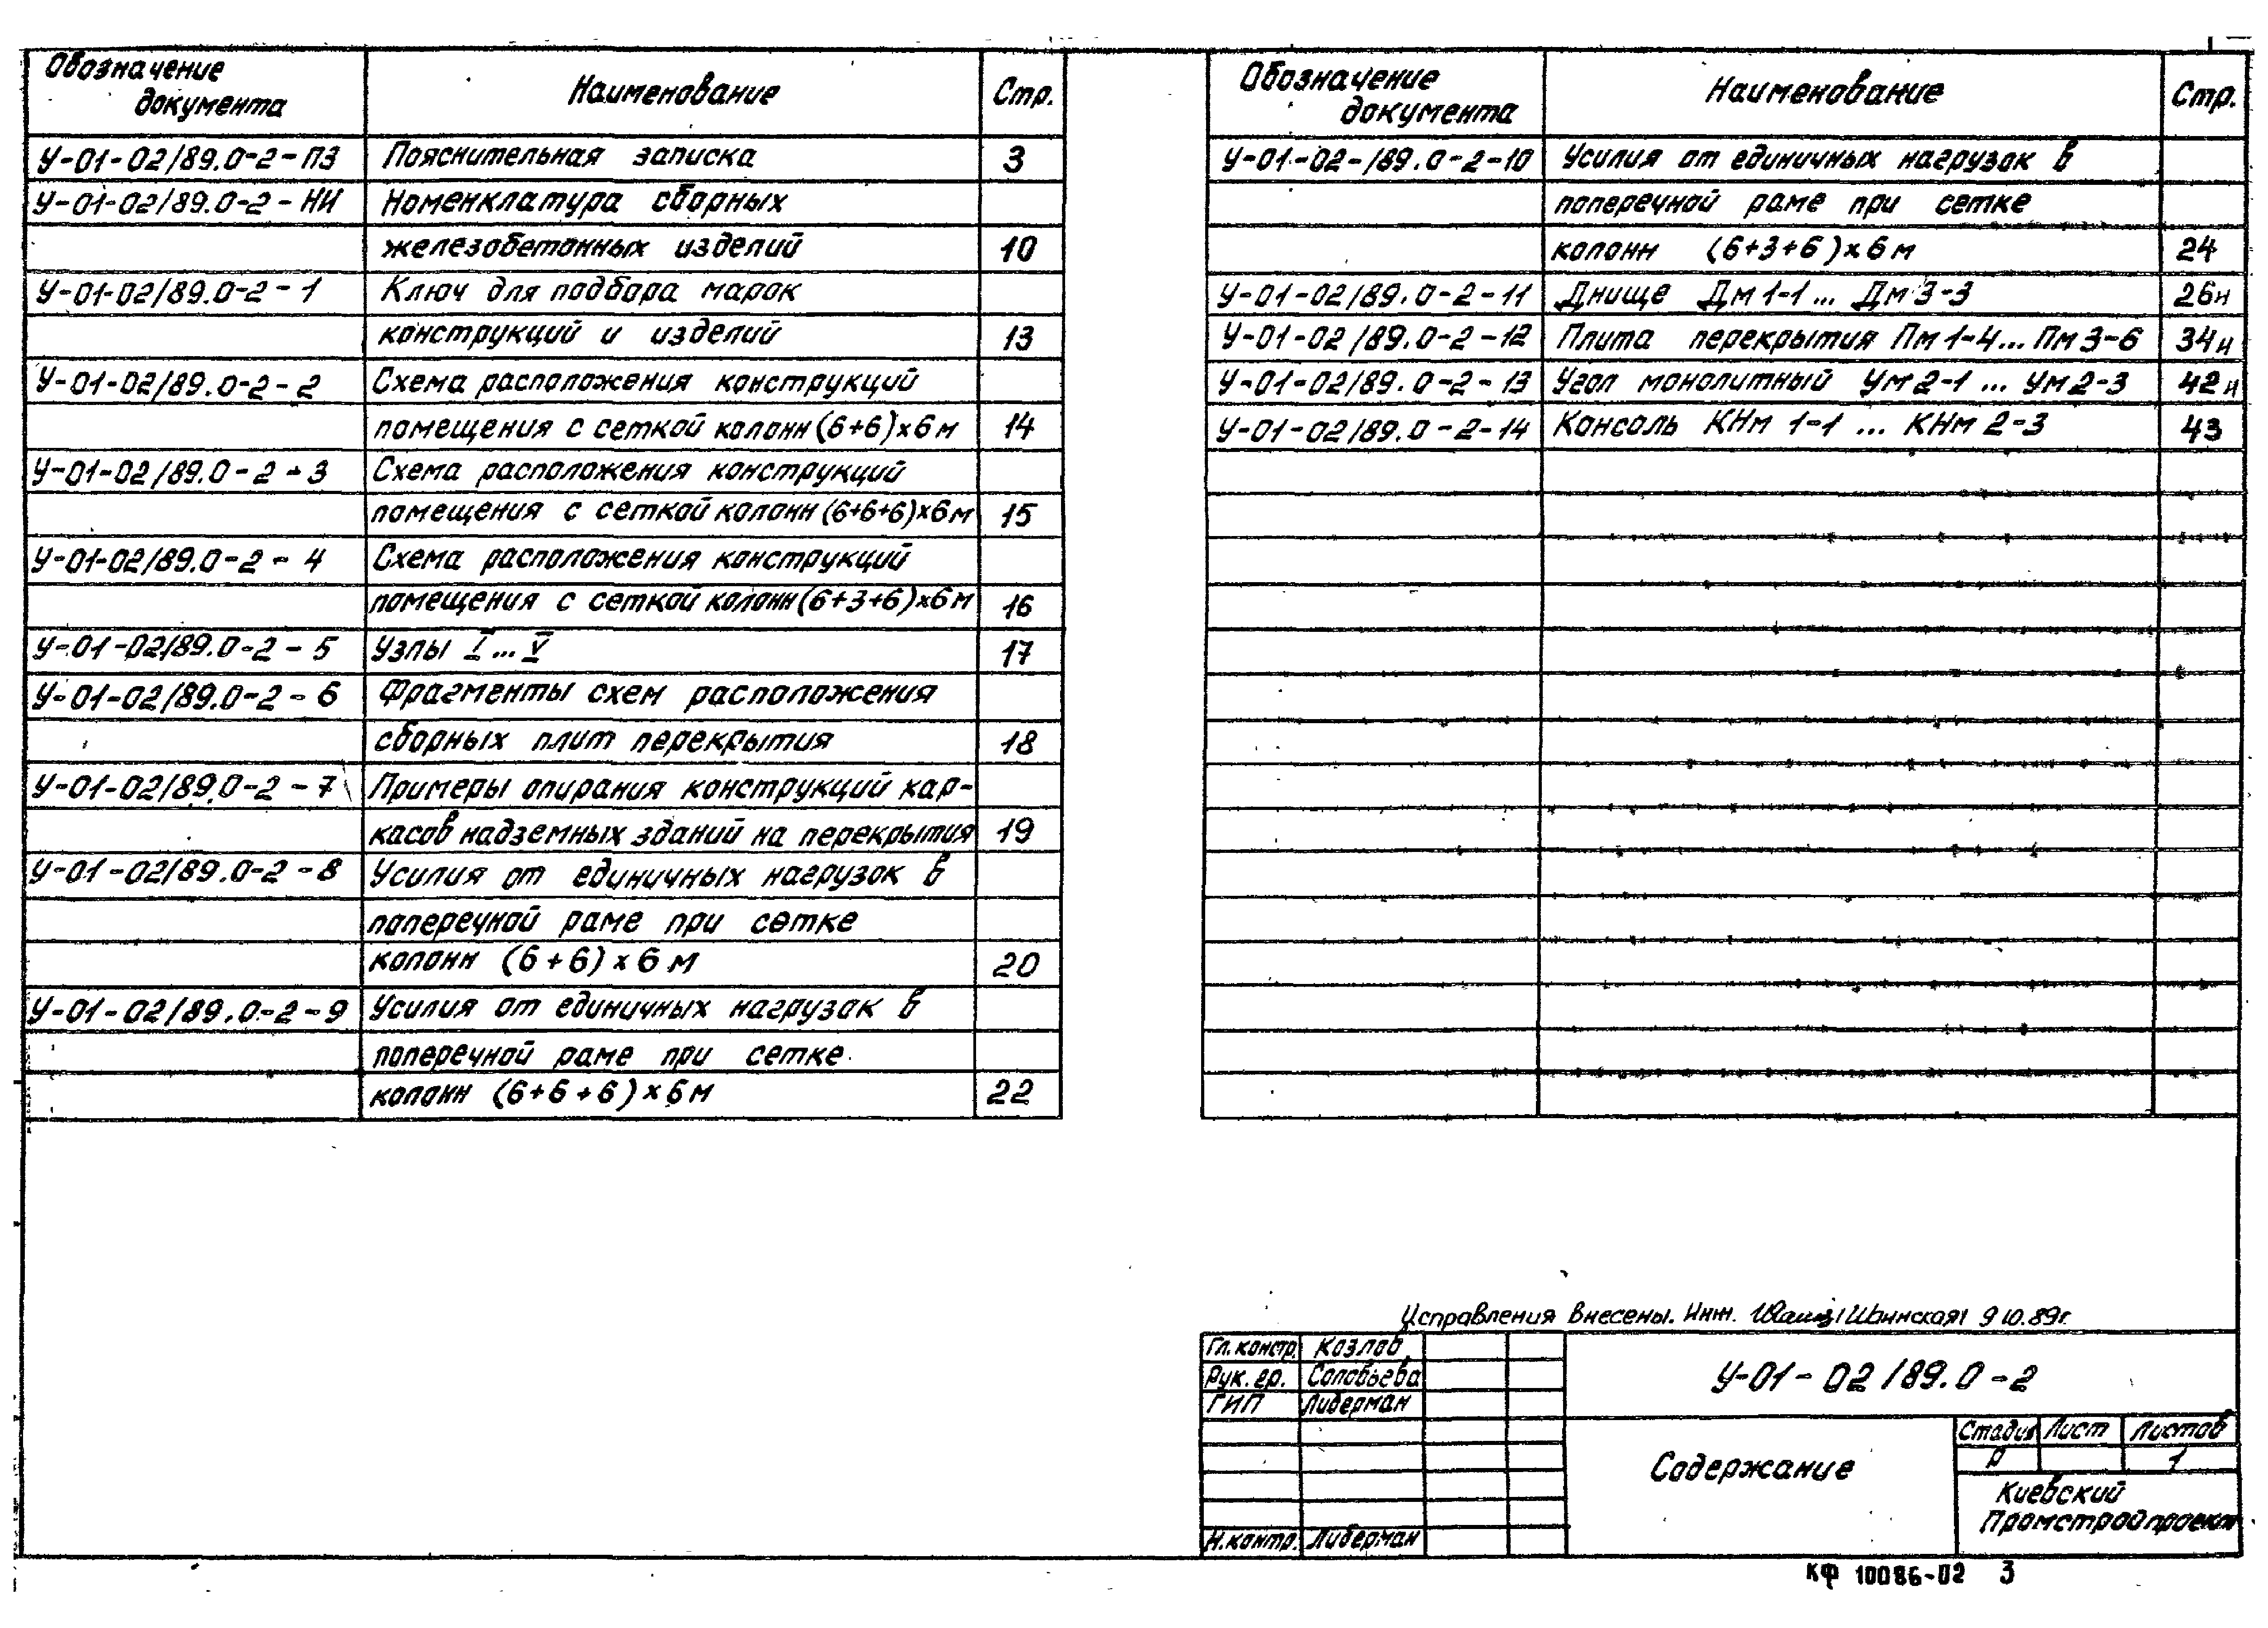 Обозначение документа Наименование Стр.
У-01-02/89.0-2-ПЗ Пояснительная записка 3
У-01-02/89.0-2-НИ Номенклатура сборных
железобетонных изделий 10
У-01-02/89.0-2-1 Ключ для подбора марок
конструкций и изделий 13
У-01-02/89.0-2-2 Схема расположения конструкций
помещения с сеткой колонн (6+6)х6м 14
У-01-02/89.0-2-3 Схема расположения конструкций
помещения с сеткой колонн (6+6+6)х6м 15
У-01-02/89.0-2-4 Схема расположения конструкций
помещения с сеткой колонн (6+3+6)х6м 16
У-01-02/89.0-2-5 Узлы I...V 17
У-01-02/89.0-2-6 Фрагменты схем расположения
сборных плит перекрытия 18
У-01-02/89.0-2-7 Примеры опирания конструкций кар-
касов надземных зданий на перекрытия 19
У-01-02/89.0-2-8 Усилия от единичных нагрузок в
поперечной раме при сетке
колонн (6+6)х6м 20
У-01-02/89.0-2-9 Усилия от единичных нагрузок в
поперечной раме при сетке
колонн (6+6+6)х6м 22
Обозначение документа Наименование Стр.
У-01-02-/89.0-2-10 Усилия от единичных нагрузок в
поперечной раме при сетке
колонн (6+3+6)х6м 24
У-01-02/89.0-2-11 Днище Дм1-1... Дм3-3 26и
У-01-02/89.0-2-12 Плита перекрытия Пм1-4... Пм3-6 34и
У-01-02/89.0-2-13 Угол монолитный Ум2-1 ... Ум2-3 42и
У-01-02/89.0-2-14 Консоль КНм 1-1 ... КНм 2-3 43
Исправления внесены. Инж. 9.10.89г.
Гл. констр. Козлов
Рук. гр. Соловьева
ГИП Либерман
Н.контр. Либерман
У-01-02/89.0-2
Содержание
Стадия Лист Листов
Р 1
Киевский
Промстройпроект
КФ 10086-02 3